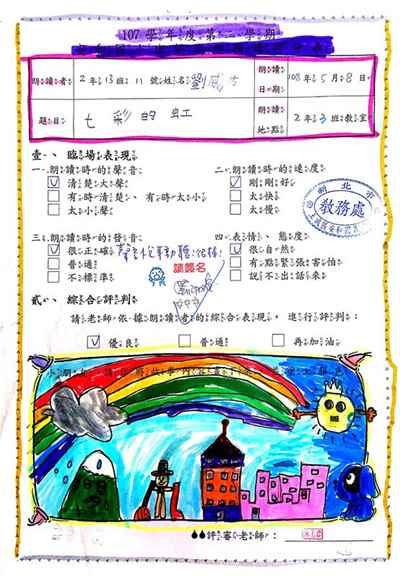 107學年度第二學期
朗讀者 2年13班11號姓名 劉 朗讀日期 108年5月8日
題目 七彩的虹 朗讀地點 2年3班教室
壹、臨場表現
一、朗讀時的聲音 二、朗讀時的速度
清楚大聲 剛剛好
有時清楚、有時太小 太快
太小聲 太慢
新北市
教務處
三、朗讀時的發音 四、表情、態度
很正確 很自然
普通 有點緊張害怕
不標準 說不出話來
請簽名
貳、綜合評判
請老師依據朗讀者的綜合表現,進行評判:
優良 普通 再加油
小朋友 請 將故事內容畫下來
評審老師: